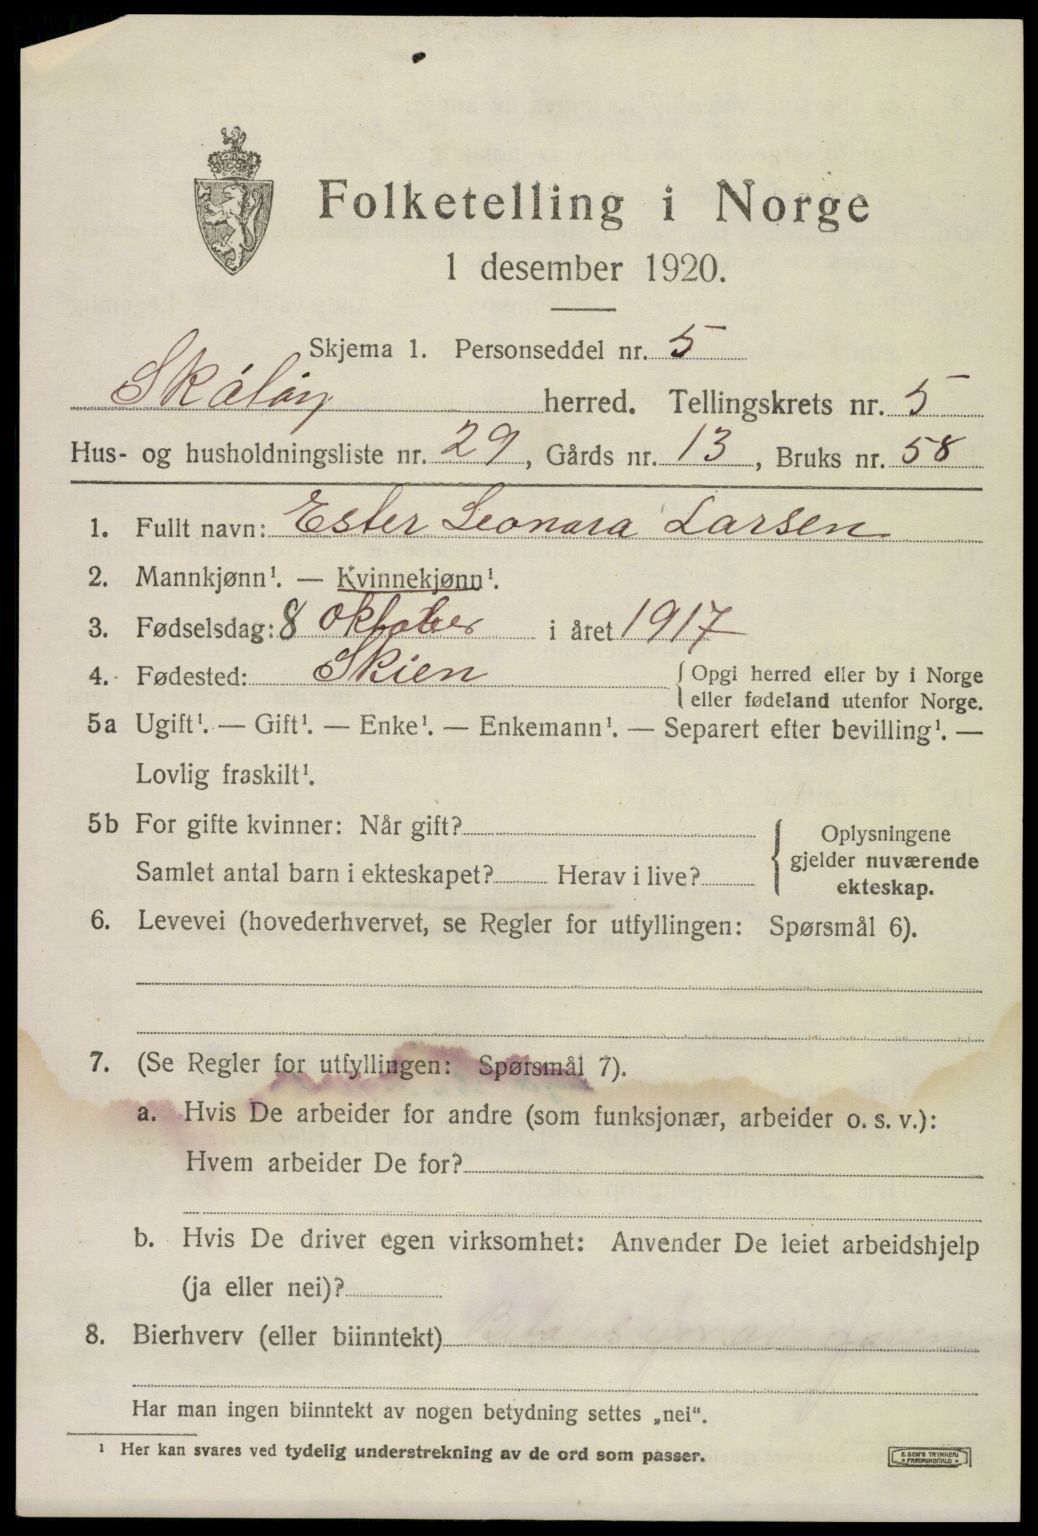 Folketelling i Norge
1 desember 1920.
Skjema 1. Personseddel nr. 5
Skåtøy herred. Tellingskrets nr. 5
Hus- og husholdningsliste nr. 29, Gårds nr. 13, Bruks nr. 58
1. Fullt navn: Ester Leonara Larsen
2. Mannkjønn¹. — Kvinnekjønn¹.
3. Fødselsdag: 8 oktober i året 1917
4. Fødested: Skien { Opgi herred eller by i Norge
eller fødeland utenfor Norge.
5a Ugift¹. — Gift¹. — Enke¹. — Enkemann¹. — Separert efter bevilling¹. —
Lovlig fraskilt¹.
5b For gifte kvinner: Når gift?
Samlet antal barn i ekteskapet? Herav i live?
{ Oplysningene
gjelder nuværende
ekteskap.
6. Levevei (hovederhvervet, se Regler for utfyllingen: Spørsmål 6).
7. (Se Regler for utfyllingen: Spørsmål 7).
a. Hvis De arbeider for andre (som funksjonær, arbeider o. s. v.):
Hvem arbeider De for?
b. Hvis De driver egen virksomhet: Anvender De leiet arbeidshjelp
(ja eller nei)?
8. Bierhverv (eller biinntekt)
Har man ingen biinntekt av nogen betydning settes „nei".
¹ Her kan svares ved tydelig understrekning av de ord som passer.